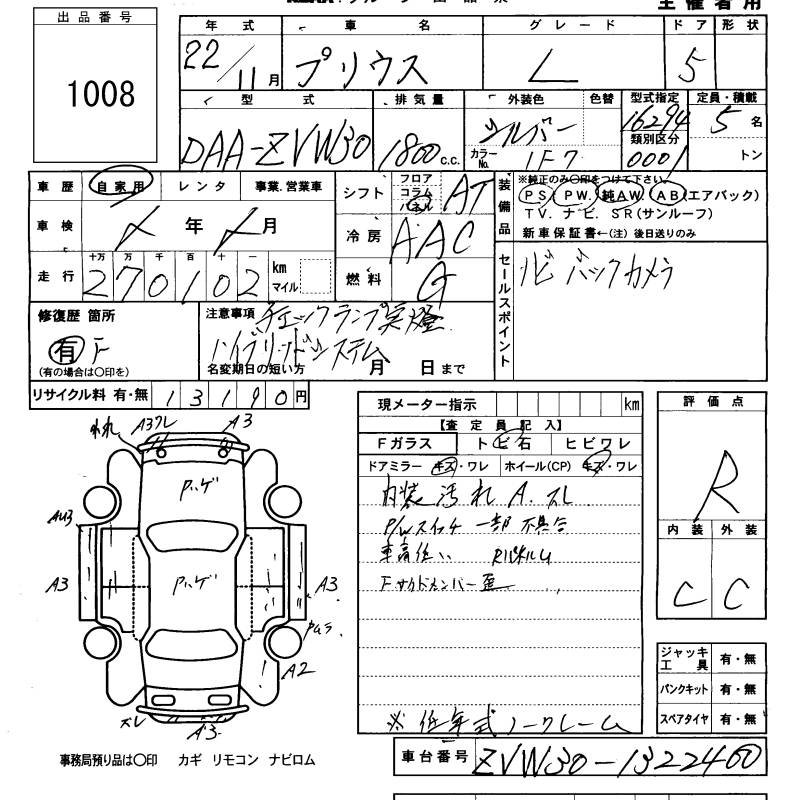 主催者用
出品番号
1008
年式 車名 グレード ドア 形状
22/11月 プリウス L 5
型式 排気量 外装色 色替 型式指定 定員・積載
DAA-ZVW30 1800c.c. シルバー 16294 5名
カラーNo. 1F7 類別区分 0001 トン
車歴 自家用 レンタ 事業.営業車
シフト フロア コラム パネル AT
装備品
※純正のみ〇印をつけて下さい。
PS. PW. 純AW. AB(エアバック)
TV. ナビ. SR(サンルーフ)
新車保証書←(注) 後日送りのみ
車検 〆年〆月
冷房 AAC
走行 十万 万 千 百 十 一
270102 km マイル
燃料 G
セールスポイント
ナビ バックカメラ
修復歴 箇所
有 F
(有の場合は〇印を)
注意事項 チェックランプ実燈
ハイブリッドシステム
名変期日の短い方 月 日まで
リサイクル料 有・無 13190円
現メーター指示 km
【査定員記入】
Fガラス トビ石 ヒビワレ
ドアミラー キズ・ワレ ホイール(CP) キズ・ワレ
内装汚れ A.スレ
P/Wスイッチ 一部不具合
車高低い RパネルM
Fサイドメンバー歪
※低年式ノークレーム
評価点
R
内装 外装
C C
われ A3ワレ A3
Pハゲ
AU3
Pハゲ
A3 A3
Pムラ
A2
スレ A3
ジャッキ工具 有・無
パンクキット 有・無
スペアタイヤ 有・無
事務局預り品は〇印 カギ リモコン ナビロム
車台番号 ZVW30-1322460